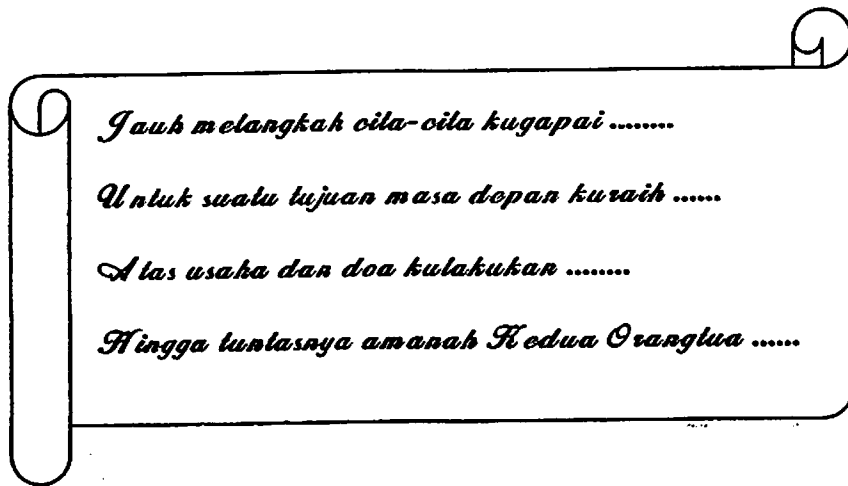 Jauh melangkah cita-cita kugapai ........
Untuk suatu tujuan masa depan kuraih ......
Atas usaha dan doa kulakukan ........
Hingga tuntasnya amanah Kedua Orangtua ......